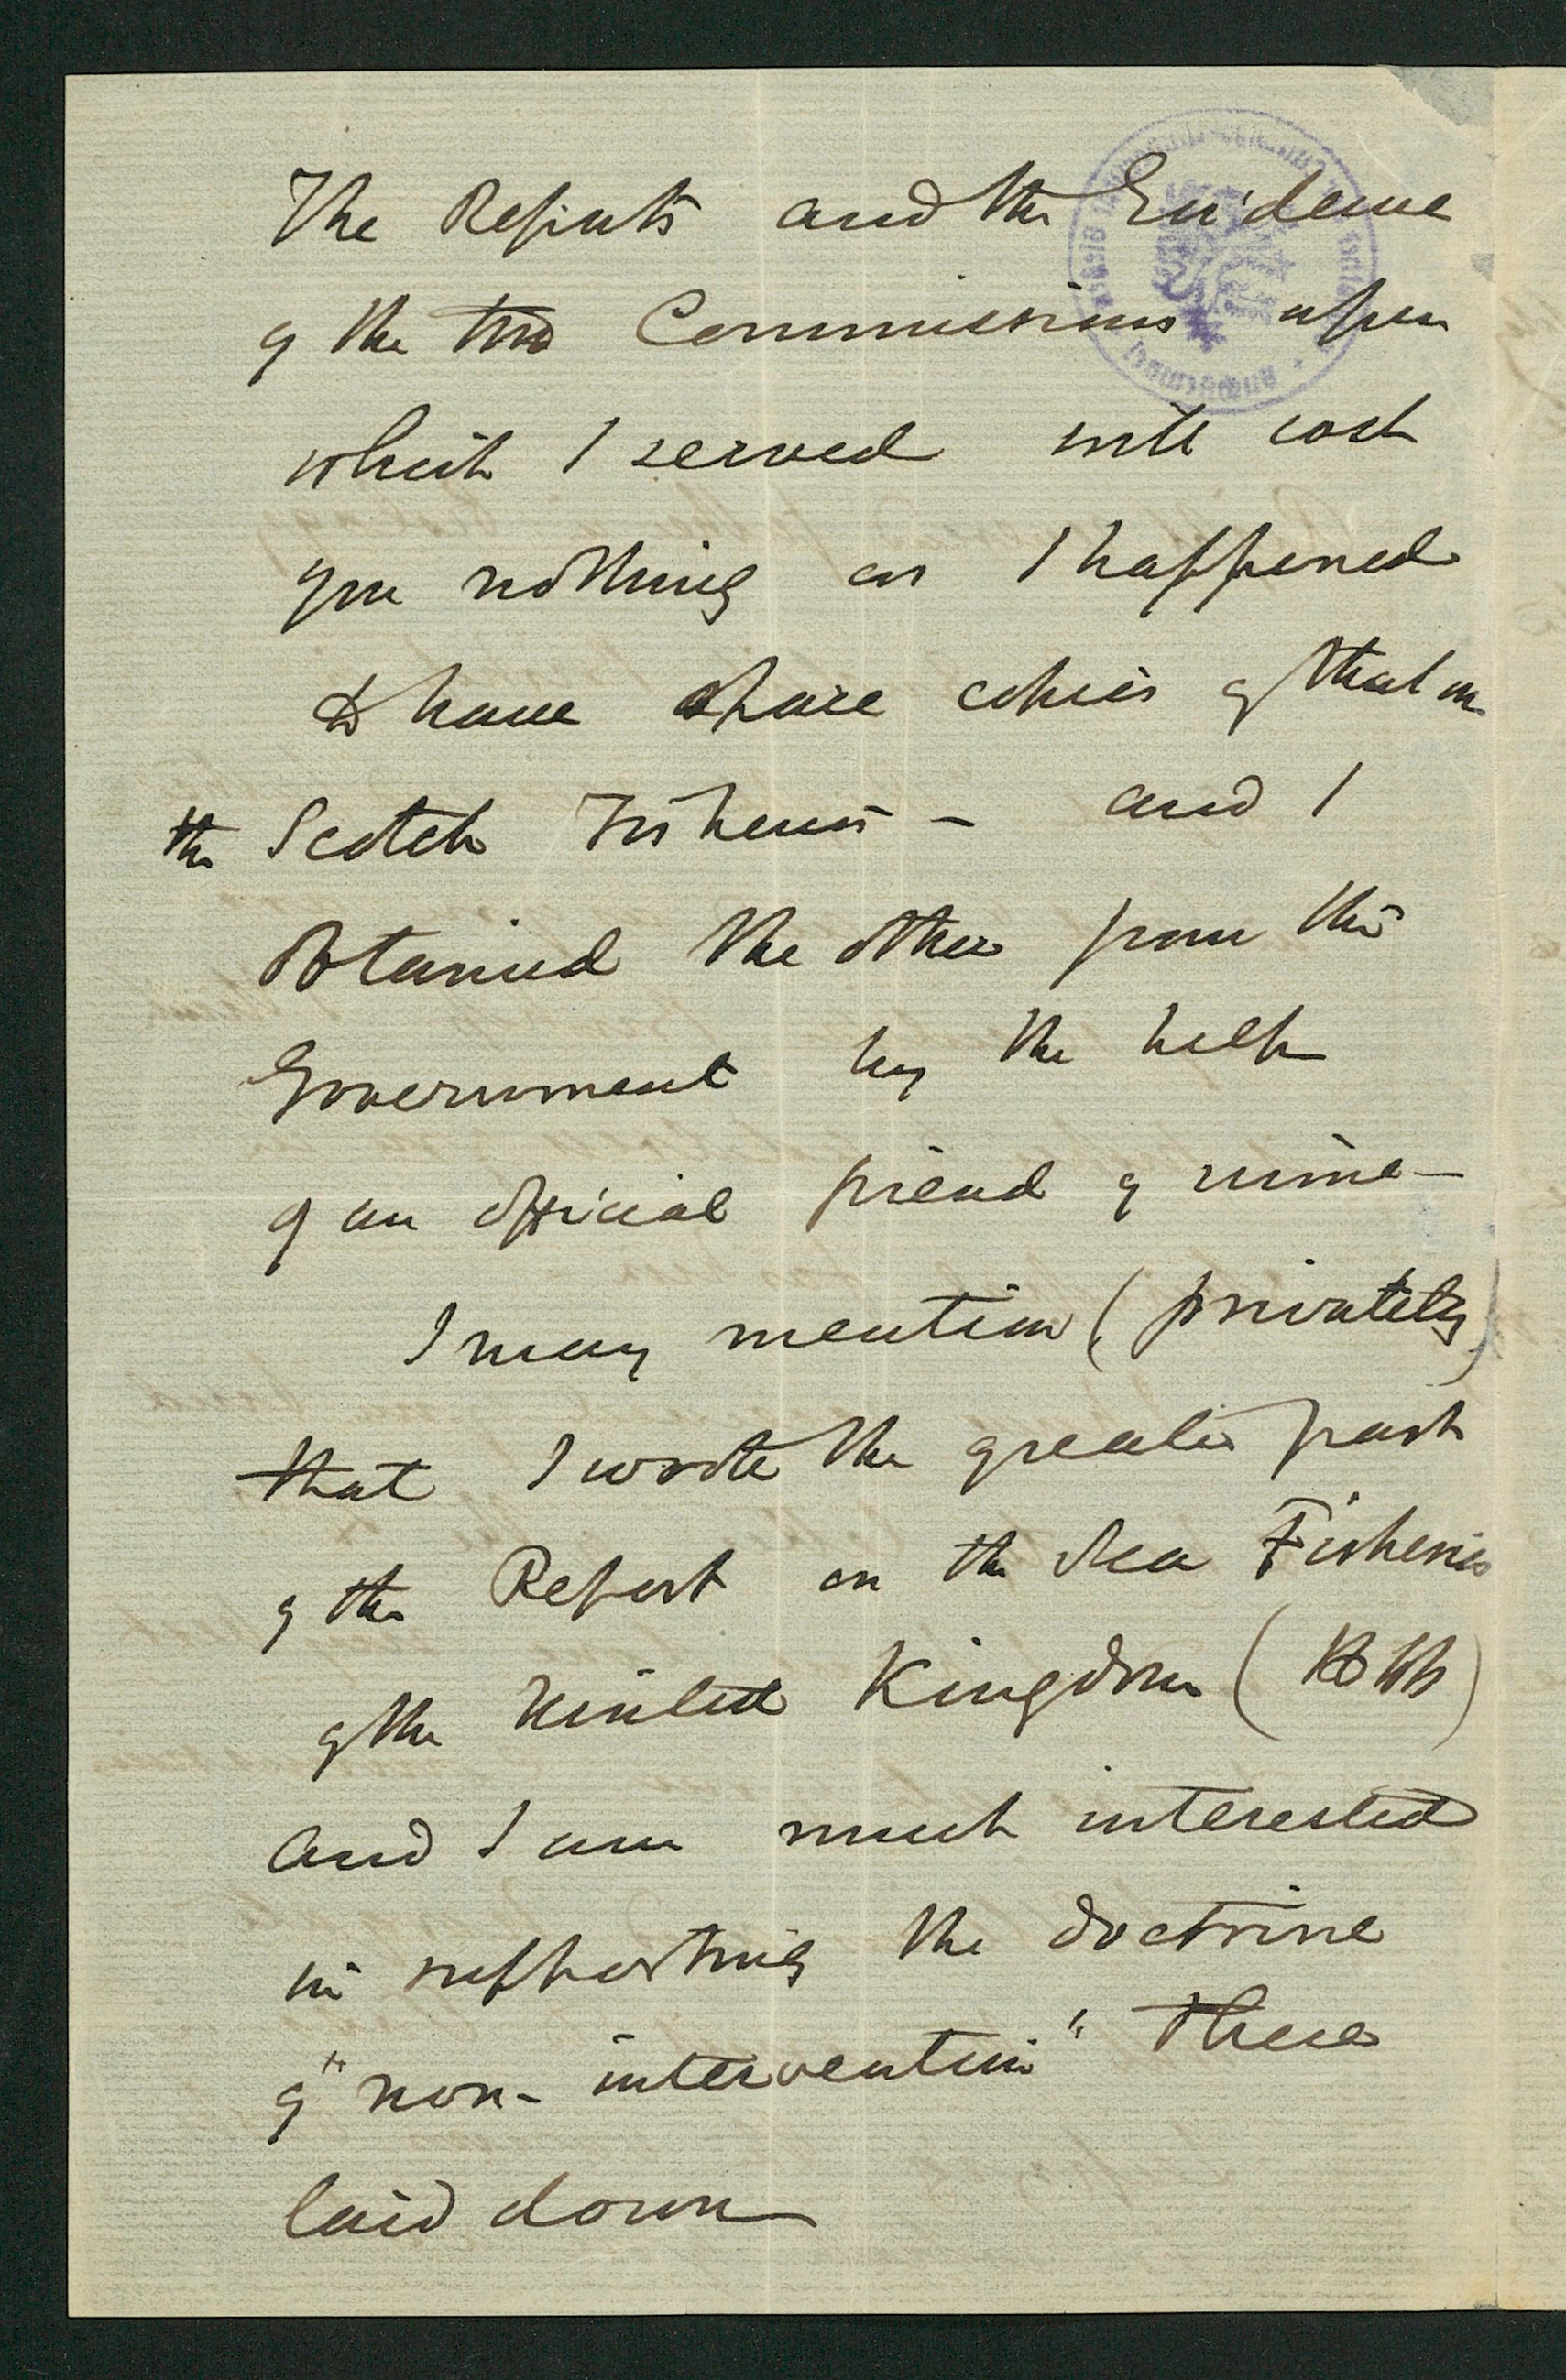 The Reports and the Evidence
of the two Commissions upon
which I served will cost
you nothing as I happened
to have spare copies of that on
the Scotch Fisheries – and I
obtained the other from the
Government by the help
of an official friend of mine –
I may mention (privately)
that I wrote the greater part
of the Report on the Sea Fisheries
of the United Kingdom (1866)
and I am much interested
in supporting the doctrine
of "non-intervention" there
laid down